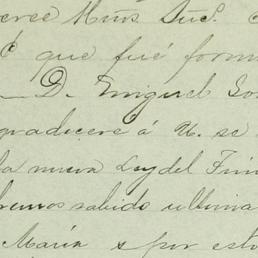 que fué form
D. Enriquel So
gradeceré á U. se
la nueva Ley del Tim
hemos sabido ultima
María y por est